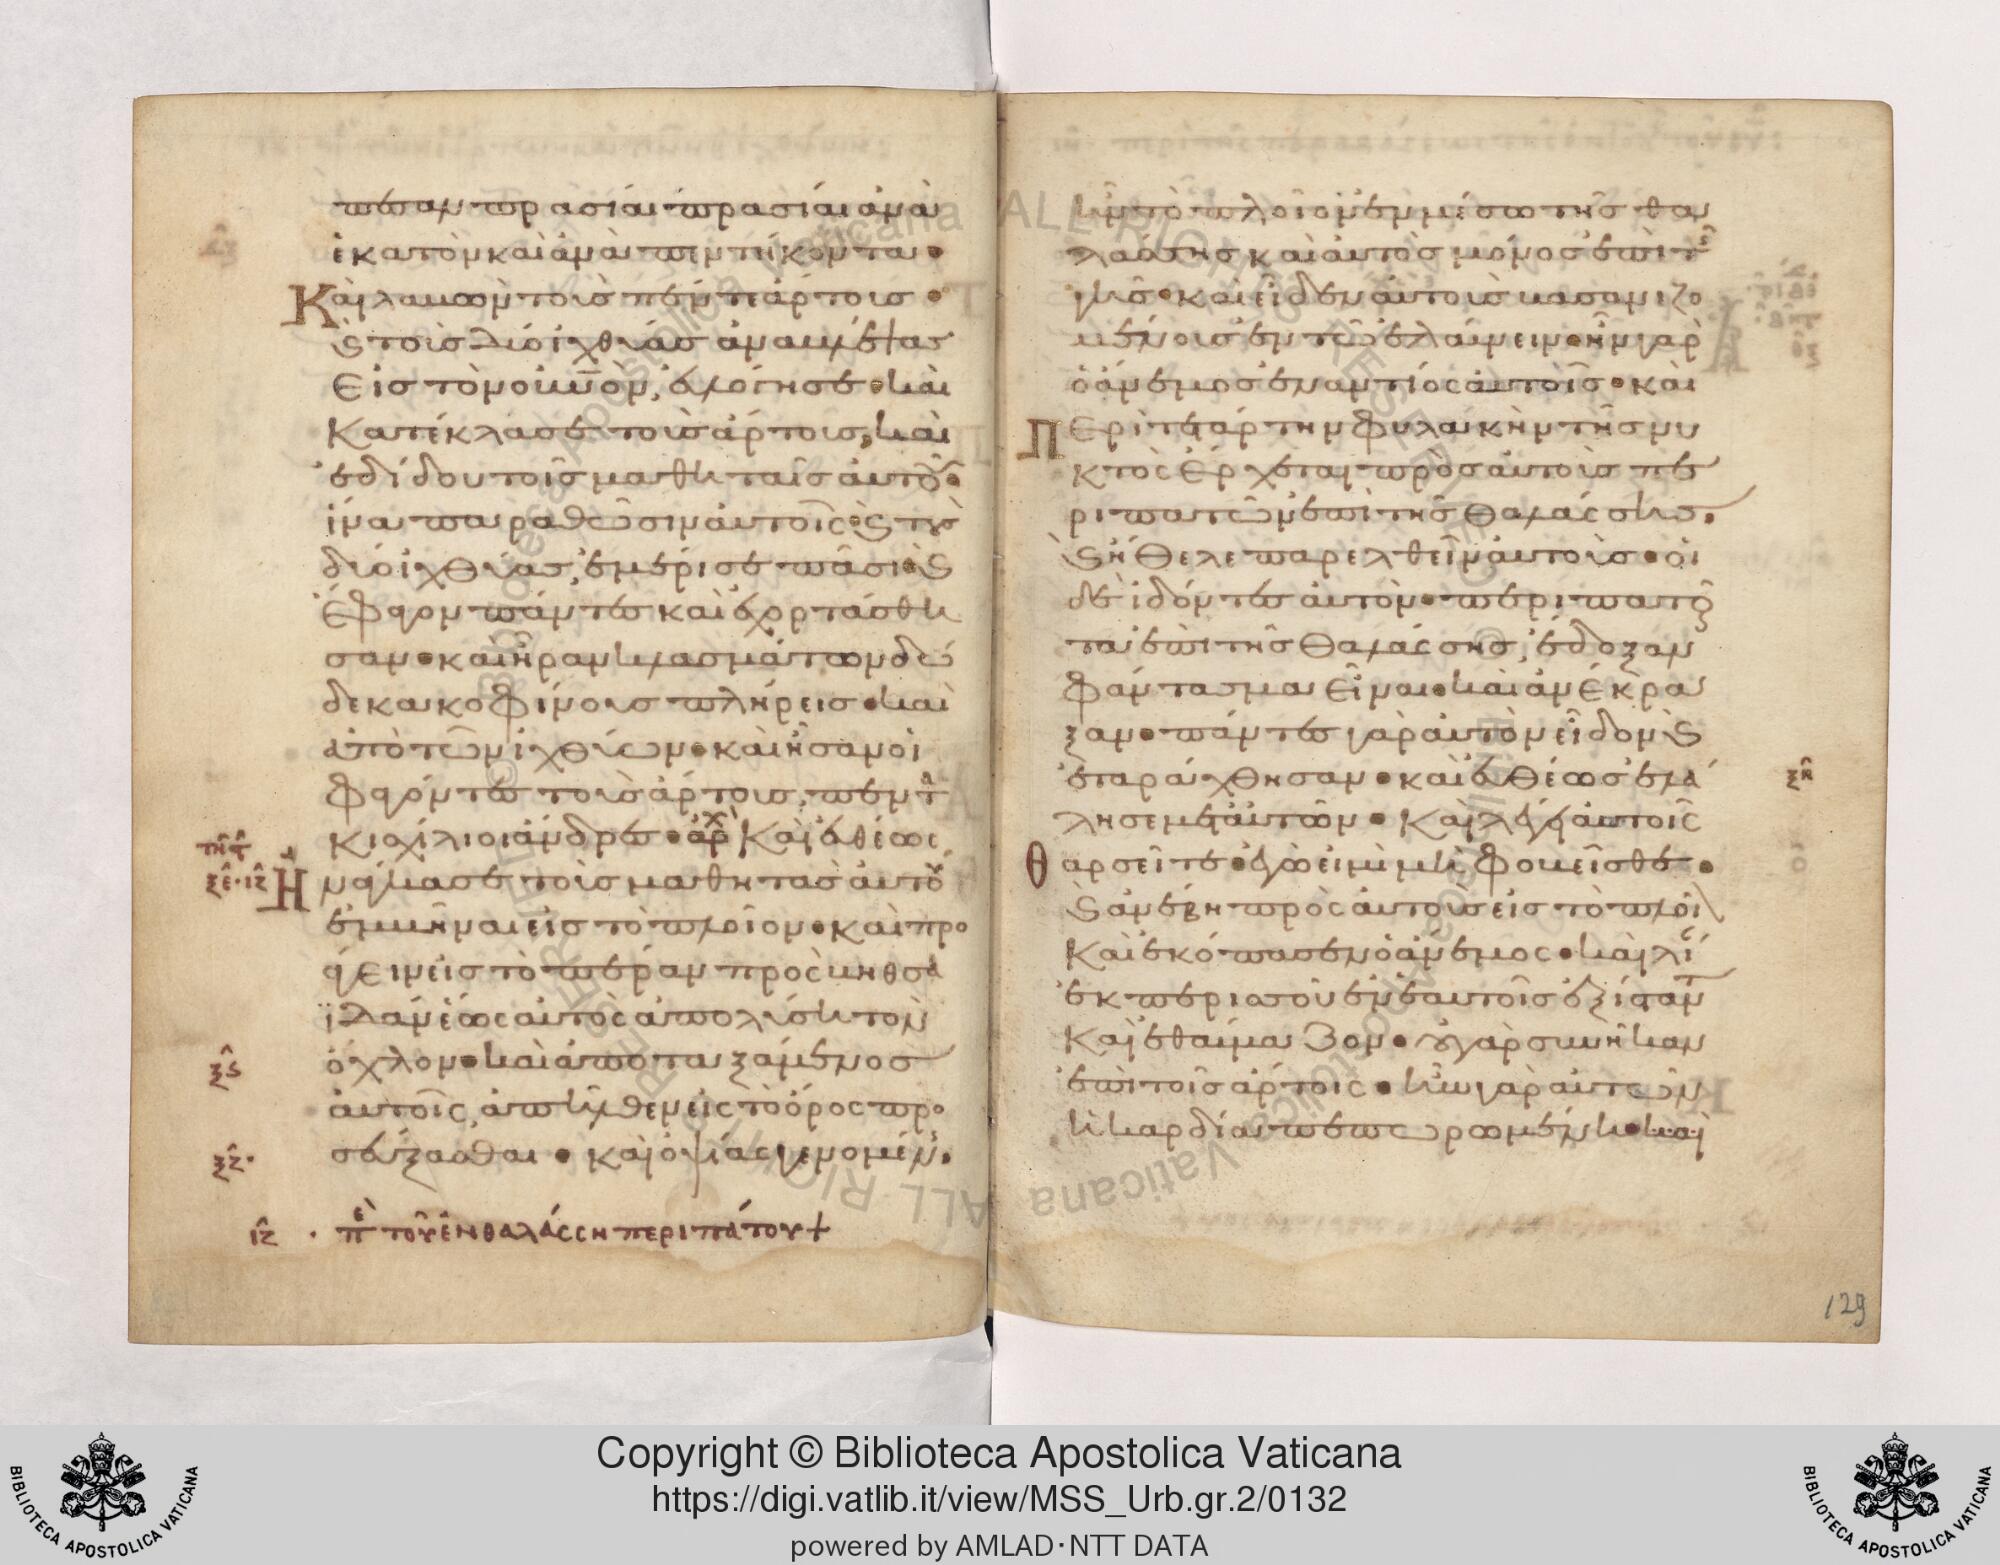 πεσαν πρασιαὶ πρασιαὶ ἀνὰ
ἑκατὸν καὶ ἀνὰ πεντήκοντα •
Καὶ λαβὼν τοὺς πέντε ἄρτους •
ϗ τοὺς δύο ἰχθύας ἀναβλέψας
εἰς τὸν οὐ̅ν̅ὸν, εὐλόγησε • καὶ
κατέκλασε τοὺς ἄρτους, καὶ
ἐδίδου τοῖς μαθηταῖς αὐτοῦ •
ἵνα παραθῶσιν αὐτοῖς • ϗ τοὺς
δύο ἰχθύας, ἐμέρισε πᾶσι • ϗ
ἔφαγον πάντες καὶ ἐχορτάσθη
σαν • καὶ ἦραν κλασμάτων δώ
δεκα κοφίνους πλήρεις • καὶ
ἀπὸ τῶν ἰχθύων • καὶ ἦσαν οἱ
φαγόντες τοὺς ἄρτους, πεντα
κισχίλιοι ἄνδρες • ἀρχ Καὶ εὐθέως
ξε · ιζ Ηνάγκασε τοὺς μαθητὰς αὐτοῦ
ἐμβῆναι εἰς τὸ πλοῖον • καὶ προ
άγειν εἰς τὸ πέραν πρὸς βηθσα
ϊδάν ἕως αὐτὸς ἀπολύση τὸν
ξϛ ὄχλον • καὶ ἀποταξάμενος
αὐτοῖς, ἀπῆλθεν εἰς τὸ ὄρος προ
ξζ · σεύξασθαι • καὶ ὀψίας γενομένης •
ιζ · πε τοῦ ἐν θαλάσση περιπάτου +
ἦν τὸ πλοῖον ἐν μέσω τῆς θα
λάσσης καὶ αὐτὸς μόνος ἐπὶ τῆς
γῆς • καὶ εἶδεν αὐτοὺς βασανιζο
μένους ἐν τῶ ἐλαύνειν • ἦν γὰρ
ὁ ἄνεμος ἐναντίος αὐτοῖς • καὶ
Περὶ τετάρτην φυλακὴν τῆς νυ
κτὸς ἔρχεται πρὸς αὐτοὺς πε
ριπατῶν ἐπὶ τῆς θαλάσσης •
ϗ ἤθελε παρελθεῖν αὐτοὺς • οἱ
δὲ ἰδόντες αὐτὸν • περιπατοῦν
τα ἐπὶ τῆς θαλάσσης, ἔδοξαν
φάντασμα εἶναι • καὶ ἀνέκρα
ξαν • πάντες γὰρ αὐτὸν εἶδον ϗ
ξη ἐταράχθησαν • καὶ εὐθέως ἐλά
λησε μετ' αὐτῶν • Καὶ λέγει αὐτοῖς
Θαρσεῖτε • ἐγώ εἰμι μὴ φοβεῖσθε •
ϗ ἀνέβη πρὸς αὐτοὺς εἰς τὸ πλοῖ
Καὶ ἐκόπασεν ὁ ἄνεμος • καὶ λί
ἐκ περισσοῦ ἐν ἑαυτοῖς ἐξίσταντ
Καὶ ἐθαύμαζον • οὐ γὰρ συνῆκαν
ἐπὶ τοῖς ἄρτοις • ἦν γὰρ αὐτῶν
ἡ καρδία πεπωρωμένη • καὶ
129
Copyright © Biblioteca Apostolica Vaticana
https://digi.vatlib.it/view/MSS_Urb.gr.2/0132
powered by AMLAD·NTT DATA
BIBLIOTECA APOSTOLICA VATICANA
BIBLIOTECA APOSTOLICA VATICANA